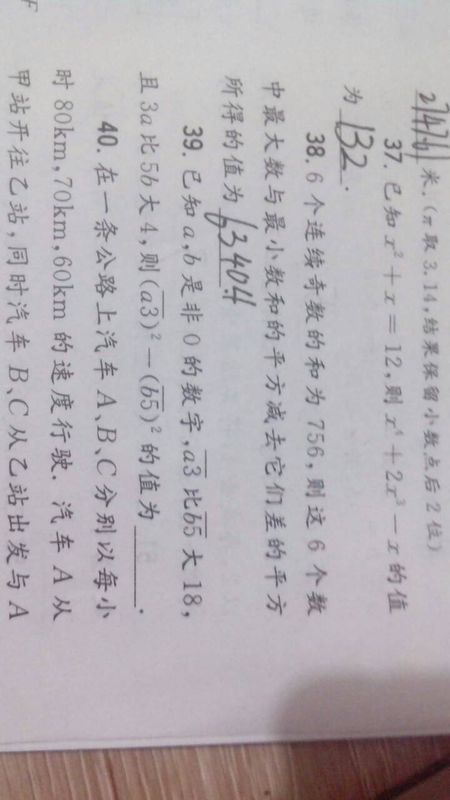 27476.01 米.(π取3.14,结果保留小数点后2位)
37. 已知 x² + x = 12,则 x⁴ + 2x³ − x 的值
为 132.
38. 6 个连续奇数的和为 756,则这 6 个数
中最大数与最小数和的平方减去它们差的平方
所得的值为 63404
39. 已知 a,b 是非 0 的数字,a̅3̅ 比 b̅5̅ 大 18,
且 3a 比 5b 大 4,则(a̅3̅)² − (b̅5̅)² 的值为______.
40. 在一条公路上汽车 A、B、C 分别以每小
时 80km,70km,60km 的速度行驶. 汽车 A 从
甲站开往乙站,同时汽车 B、C 从乙站出发与 A